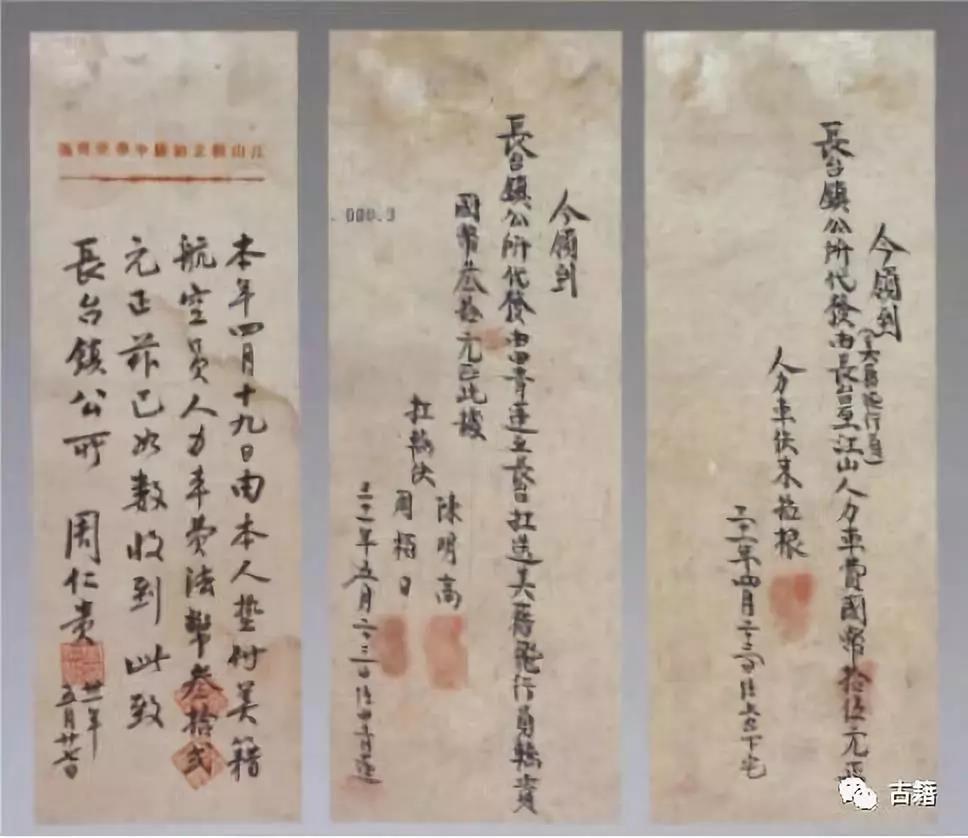 江山縣立初級中學
本年四月十九日由本人墊付美籍
航空員人力車費法幣叁拾弍
元正茲已如數收到此致
長台鎮公所
周仁貴
卅一年
五月廿七日
今領到
長台鎮公所代發由長台扛送美籍飛行員轎費
國幣叁拾元正此據
扛轎伕
陳明高
周招日
三十一年五月二十三日住
000.3
今領到
長台鎮公所代發由長台至江山人力車費國幣拾伍元正
飛行員
人力車伕朱根
三十一年四月二十
古籍